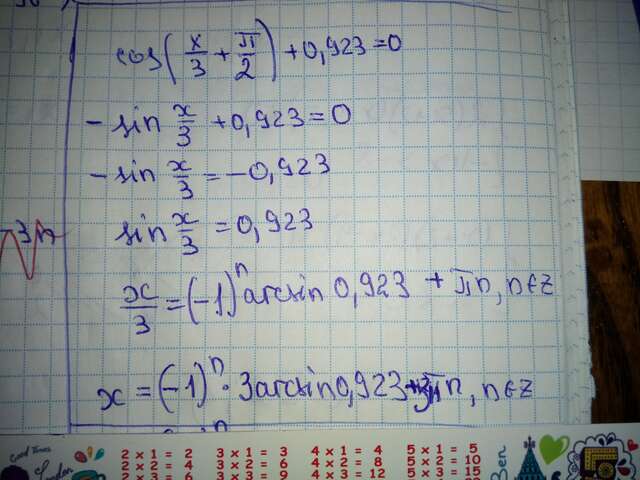 3π
cos(x/3 + π/2) + 0,923 = 0
-sin x/3 + 0,923 = 0
-sin x/3 = -0,923
sin x/3 = 0,923
x/3 = (-1)ⁿ arcsin 0,923 + πn, n∈z
x = (-1)ⁿ · 3arcsin 0,923 + 3πn, n∈z
Good Times
London
2 x 1 = 2
2 x 2 = 4
2 x 3 = 6
3 x 1 = 3
3 x 2 = 6
3 x 3 = 9
4 x 1 = 4
4 x 2 = 8
4 x 3 = 12
5 x 1 = 5
5 x 2 = 10
5 x 3 = 15
Ben